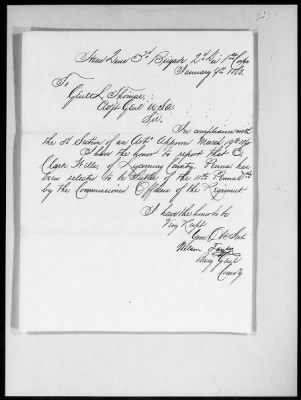 Head Qurs 3d Brigade 2d Div 1st Corps
January 9th 1863.
To
Genl L. Thomas
Adjt Genl U.S.A.
Sir.
In compliance with
the 3d Section of an Act Approved March 19th 1862
I have the honor to report that
Clark Wilde of Lycoming County Penna has
been selected to be Sutler of the 11th Penna
by the Commissioned Officers of the Regiment
I have the honor to be
Very Respt
Your Obt Svt
Nelson Taylor
Brig Genl
Comdg